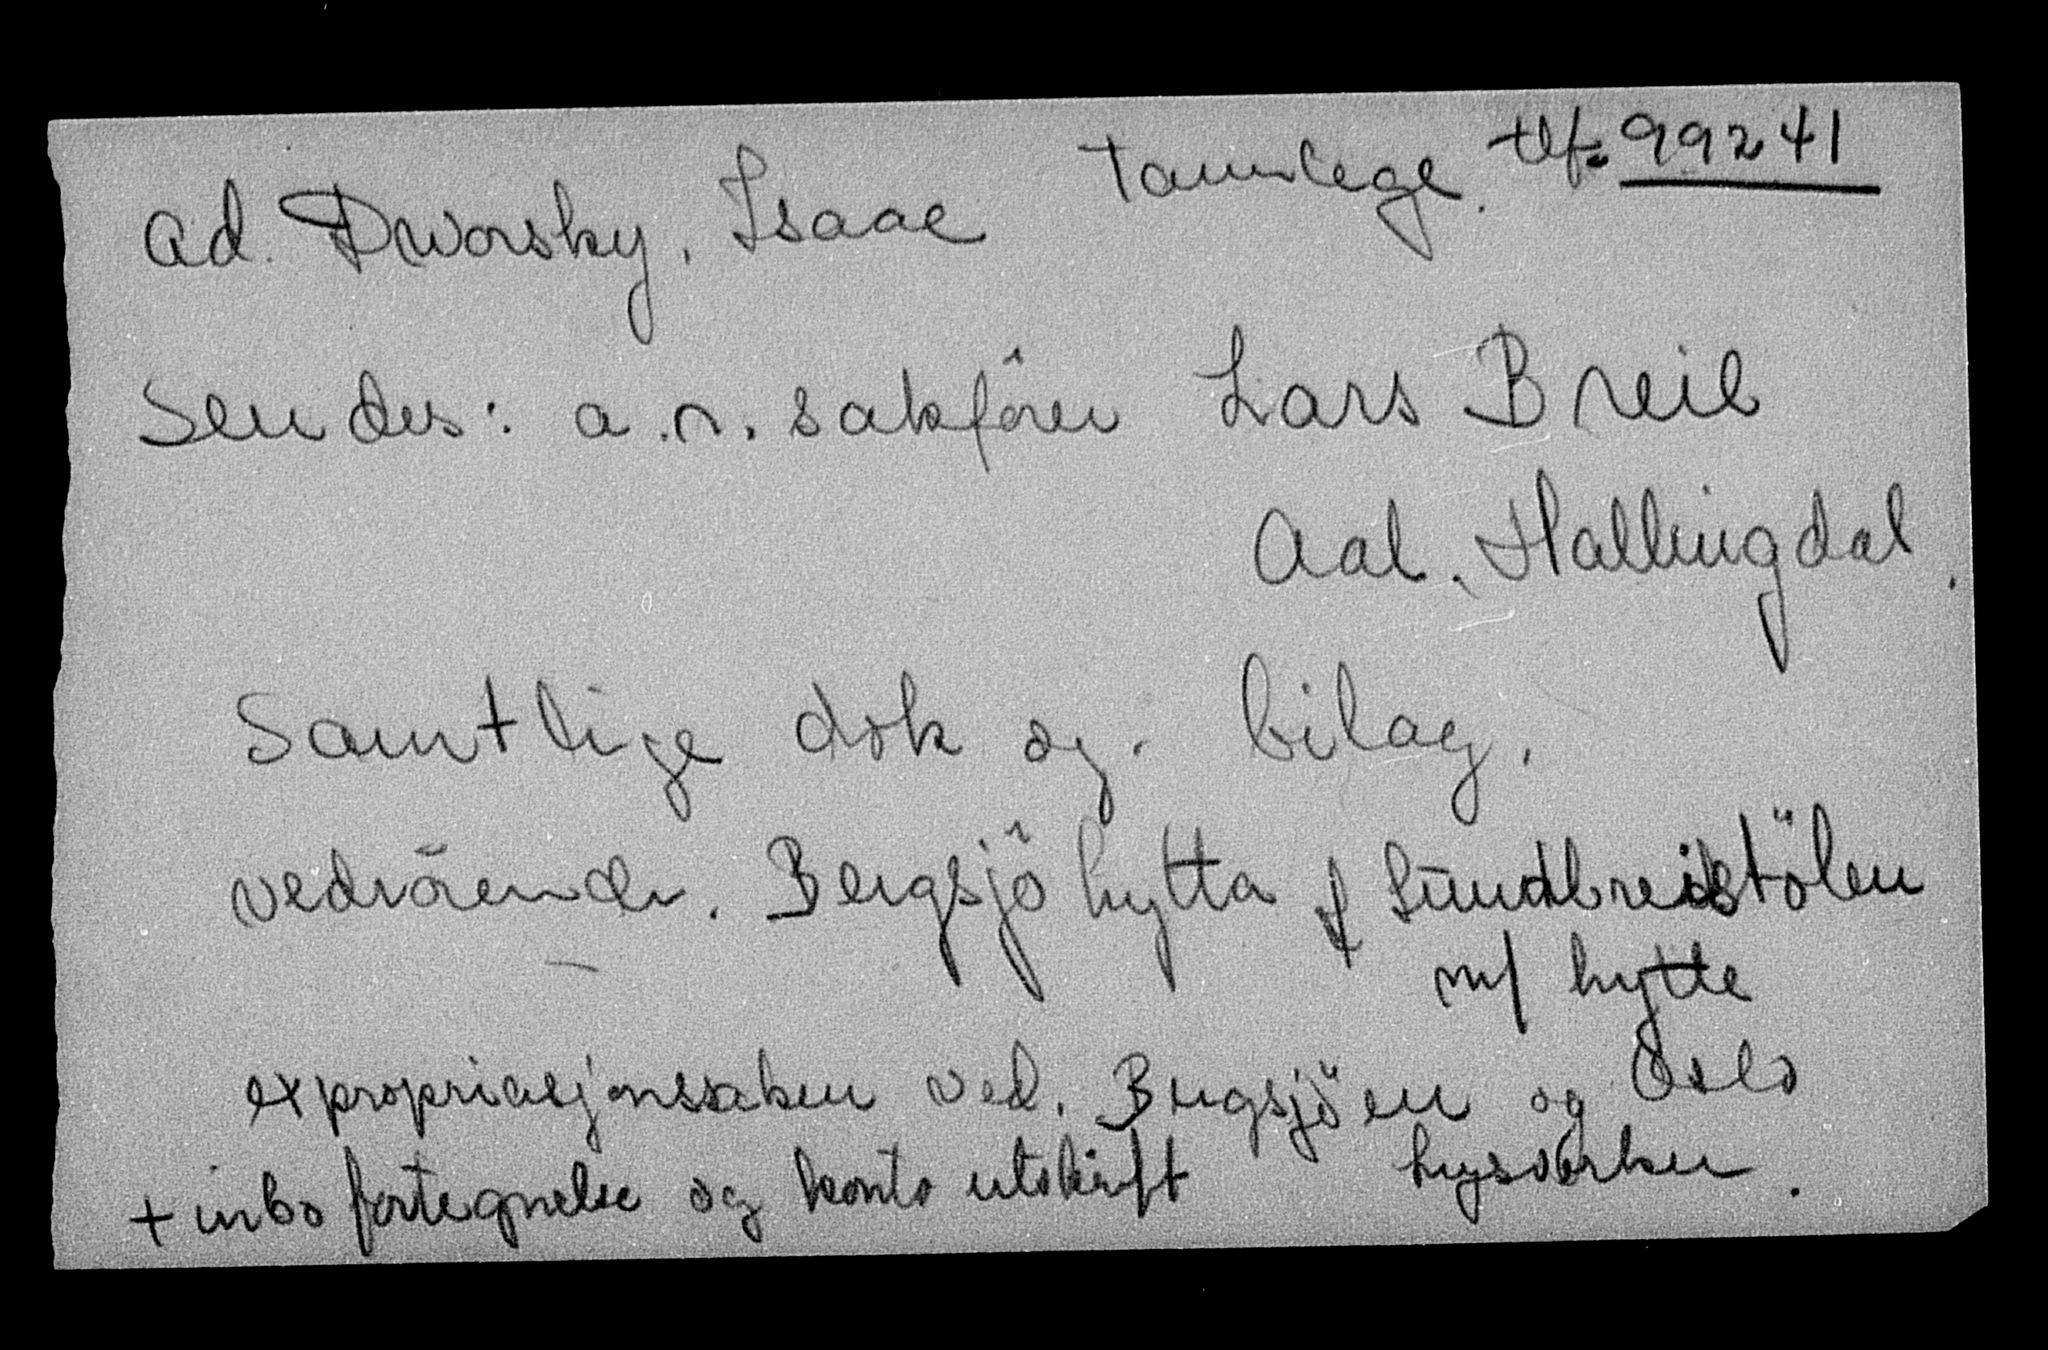 ad. Dworsky, Isaac Tannlege. tlf. 99241
Sendes: o.r. sakförer Lars Breie
Aal. Hallingdal.
Samtlige dok og. bilag.
vedrörende. Bergsjö hytta & Sundbreistölen
m/ hytte
expropriasjonssaken ved. Bergsjöen og Oslo
lysverker.
+ inbo fortegnelse og konto utskrift